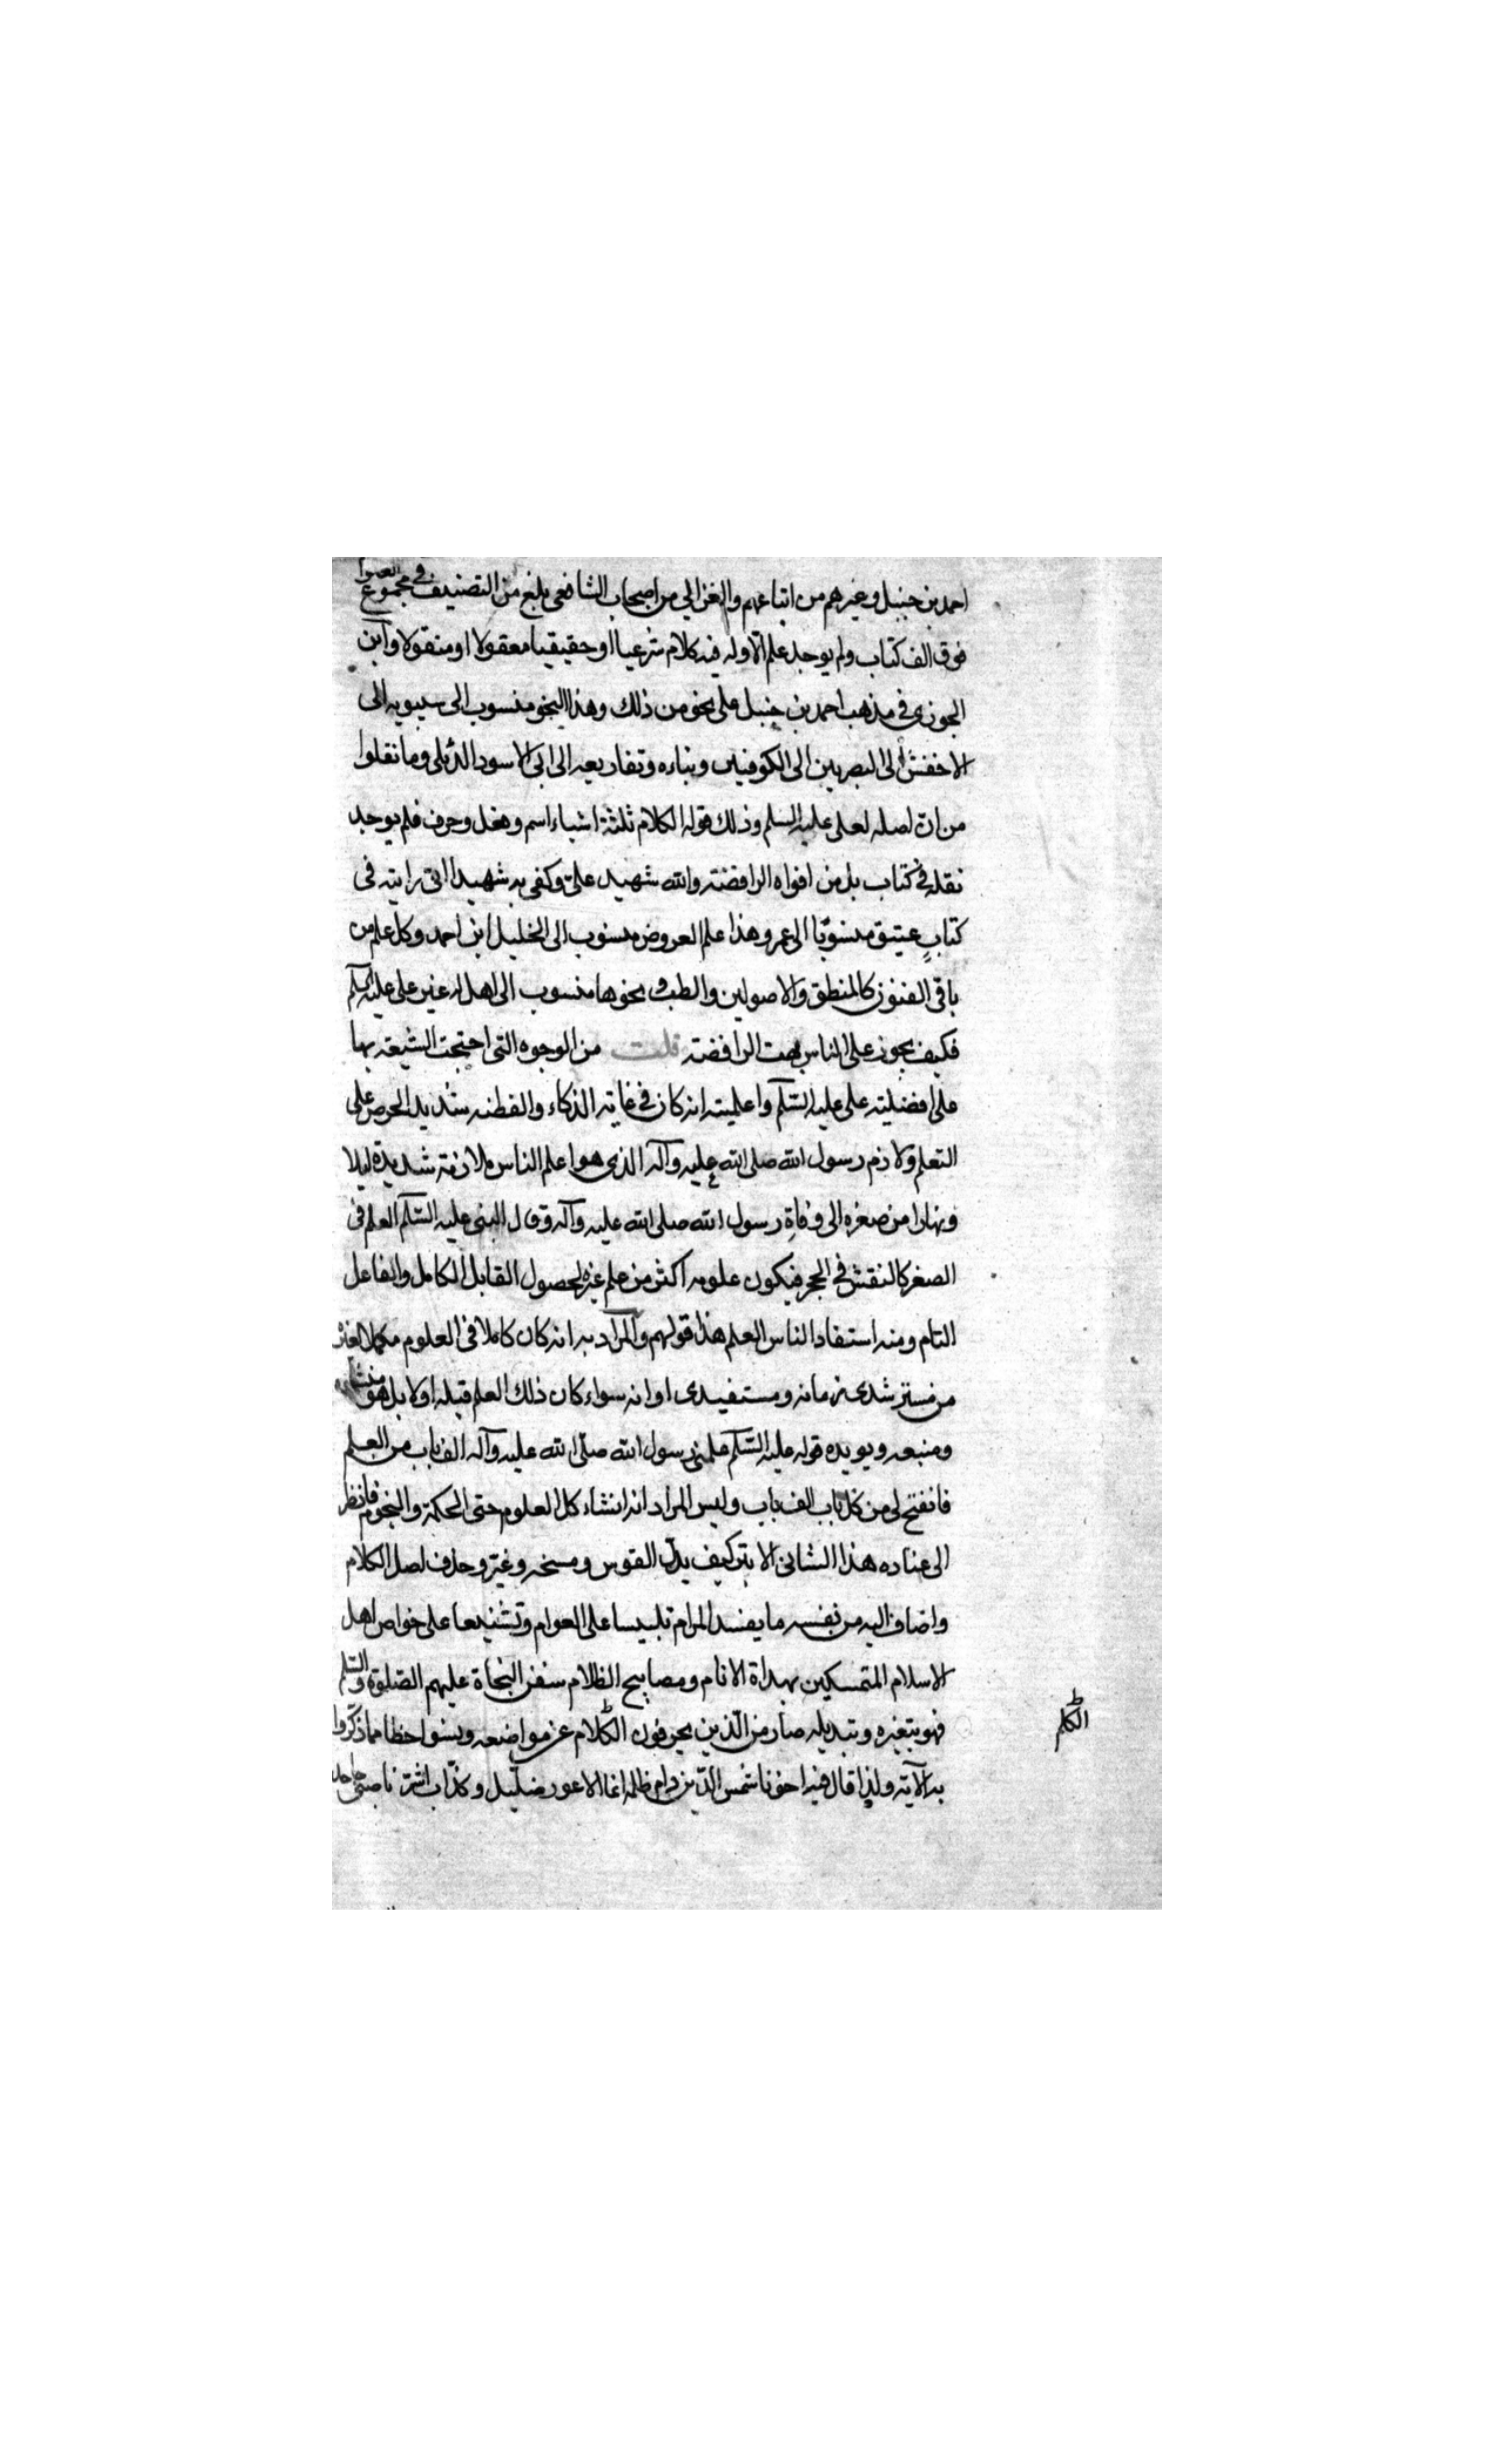 احمد بن حنبل وغيرهم من اتباعهم والغزالي من اصحاب الشافعى بلغ من التصنيف فى مجموع العلوم
فوق الف كتاب ولم يوجد علم الا وله فيه كلام شرعيا او حقيقيا معقولا او منقولا وابن
الجوزى فى مذهب احمد بن حنبل على نحو من ذلك وهذا النحو منسوب الى سيبويه الى
الاخفش الى البصريين الى الكوفيين وبناءه وتفاريعه الى ابى الاسود الدئلى وما نقلوا
من ان اصله لعلى عليه السلم وذلك قوله الكلام ثلثة اشياء اسم وفعل وحرف فلم يوجد
نقله فى كتاب بل من افواه الرافضة والله شهيد علىّ وكفى به شهيدا انى رايته فى
كتابٍ عتيق منسوبًا الى عمر وهذا علم العروض منسوب الى الخليل ابن احمد وكل علم من
باقى الفنون كالمنطق والاصولين والطب ونحوها منسوب الى اهله غير على عليه السلم
فكيف يجوز على الناس بهت الرافضة قلت من الوجوه التى احتجت الشيعة بها
على افضلية على عليه السّلم واعلميته انه كان فى غاية الذكاء والفطنه شديد الحرص على
التعلم ولازم رسول الله صلى الله عليه وآله الذى هو اعلم الناس ملازمة شديدة ليلا
ونهارا من صغره الى وفاةِ رسول الله صلى الله عليه وآله وقال النبى عليه السّلم العلم فى
الصغر كالنقش فى الحجر فيكون علومه اكثر من علم غيره لحصول القابل الكامل والفاعل
التام ومنه استفاد الناس العلم هذا قولهم والمراد به انه كان كاملا فى العلوم مكملا لغيره
من مسترشدى زمانه ومستفيدى اوانه سواء كان ذلك العلم قبله اولا بل هو منشاؤه
ومنبعه ويويده قوله عليه السّلم علمنى رسول الله صلّى الله عليه وآله الف باب من العلم
فانفتح لى من كل باب الف باب وليس المراد انه انشاء كل العلوم حتى الحكمة والنجوم فانظر
الى عناده هذا الشانئ الابتر كيف بدّل القوس ومسخه وغيّر وحذف اصل الكلام
واضاف اليه من نفسه ما يفسد المرام تلبيسا على العوام وتشنيعا على خواص اهل
الاسلام المتمسكين بهداة الانام ومصابيح الظلام سفن النجاة عليهم الصّلوة والسّلم
فهو بتغيره وتبديله صار من الّذين يحرفون الكلام عن مواضعه ونسوا حظا مما ذكّروا
به الآية ولذا قال فيه اخونا شمس الدّين دام ظله انما الاعور ضلّيل وكذّاب اشر ناصبى جاحد
الكلم